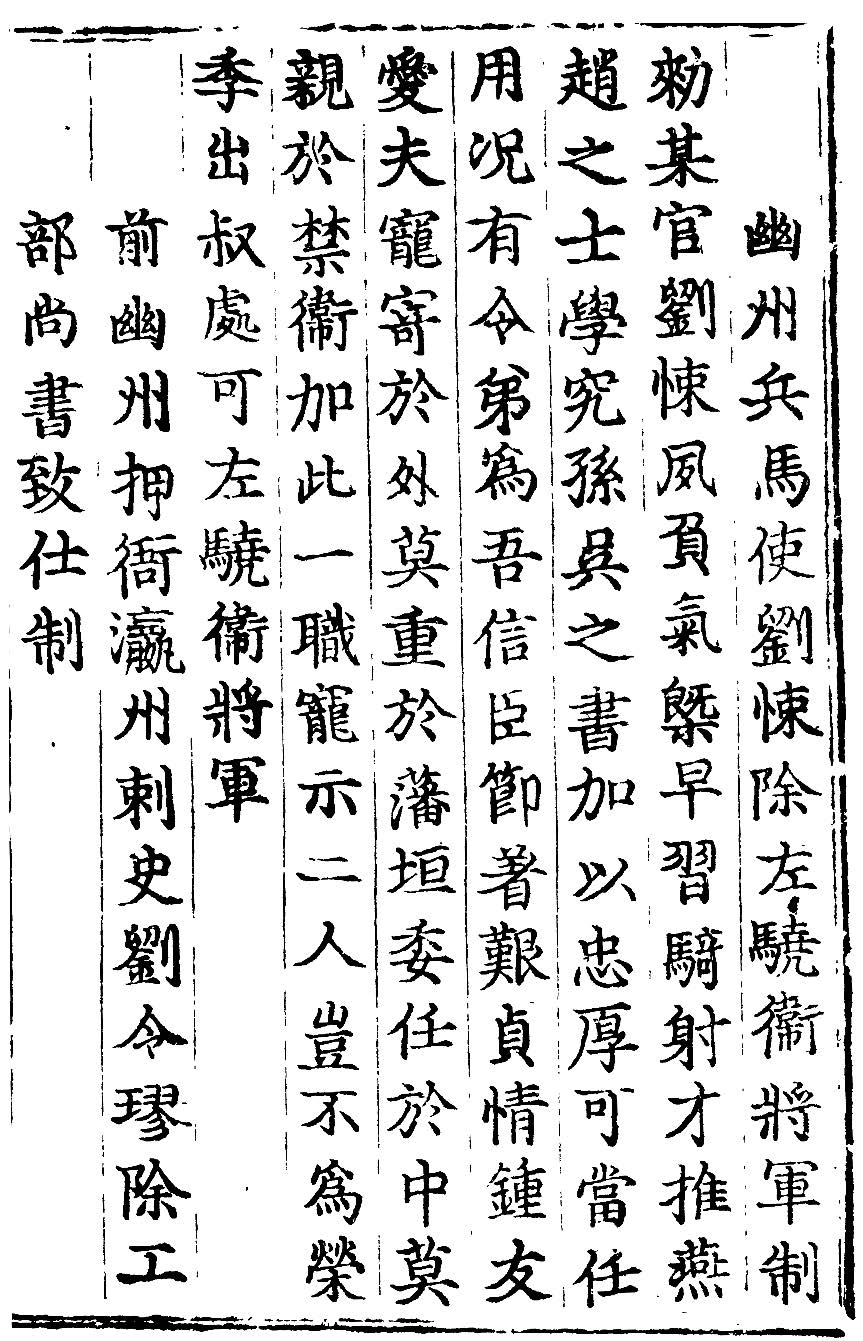 幽州兵馬使劉悚除左驍衞將軍制
勑某官劉悚夙負氣槩早習騎射才推燕
趙之士學究孫吳之書加以忠厚可當任
用況有令弟爲吾信臣節著艱貞情鍾友
愛夫寵寄於外莫重於藩垣委任於中莫
親於禁衞加此一職寵示二人豈不爲榮
季出叔處可左驍衞將軍
前幽州押衙瀛州刺史劉令璆除工
部尚書致仕制